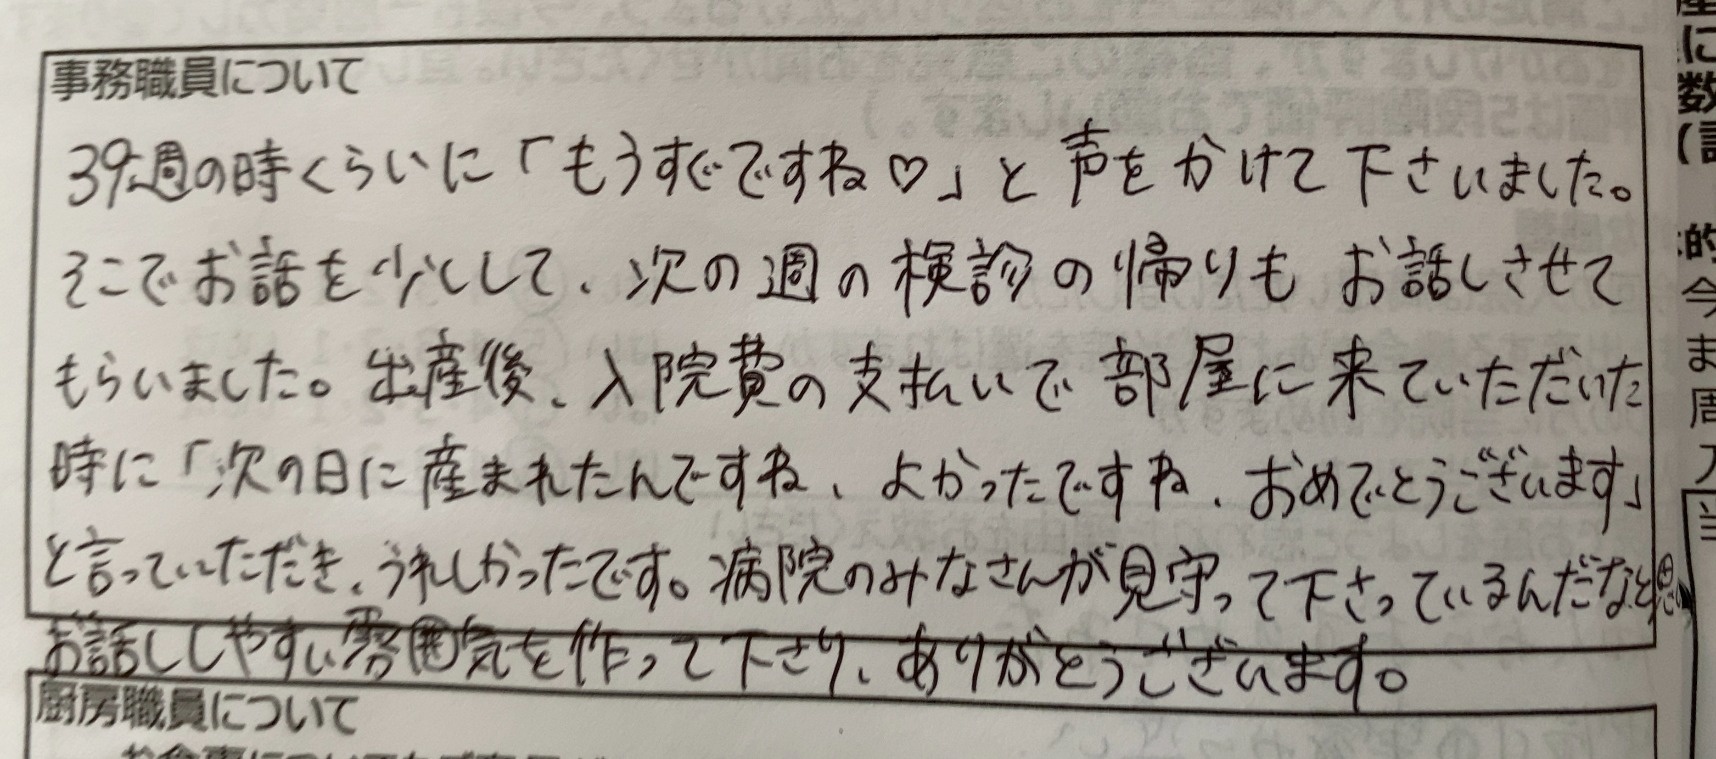 事務職員について
39週の時くらいに「もうすぐですね♡」と声をかけて下さいました。
そこでお話を少しして、次の週の検診の帰りもお話しさせて
もらいました。出産後、入院費の支払いで部屋に来ていただいた
時に「次の日に産まれたんですね、よかったですね、おめでとうございます」
と言っていただき、うれしかったです。病院のみなさんが見守って下さっているんだなと思い
お話ししやすい雰囲気を作って下さり、ありがとうございます。
厨房職員について